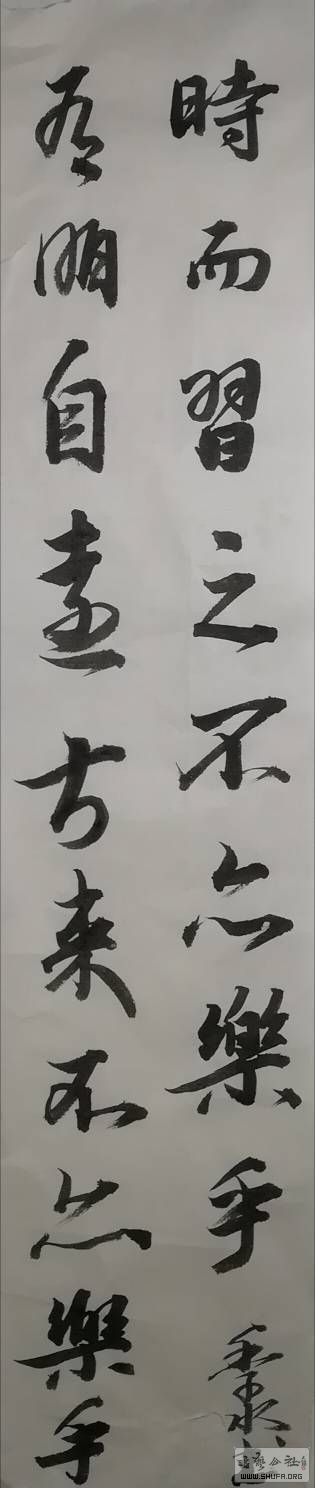 時而習之不亦樂乎
有朋自遠方来不亦樂乎
公社
WWW.SHUFA.ORG